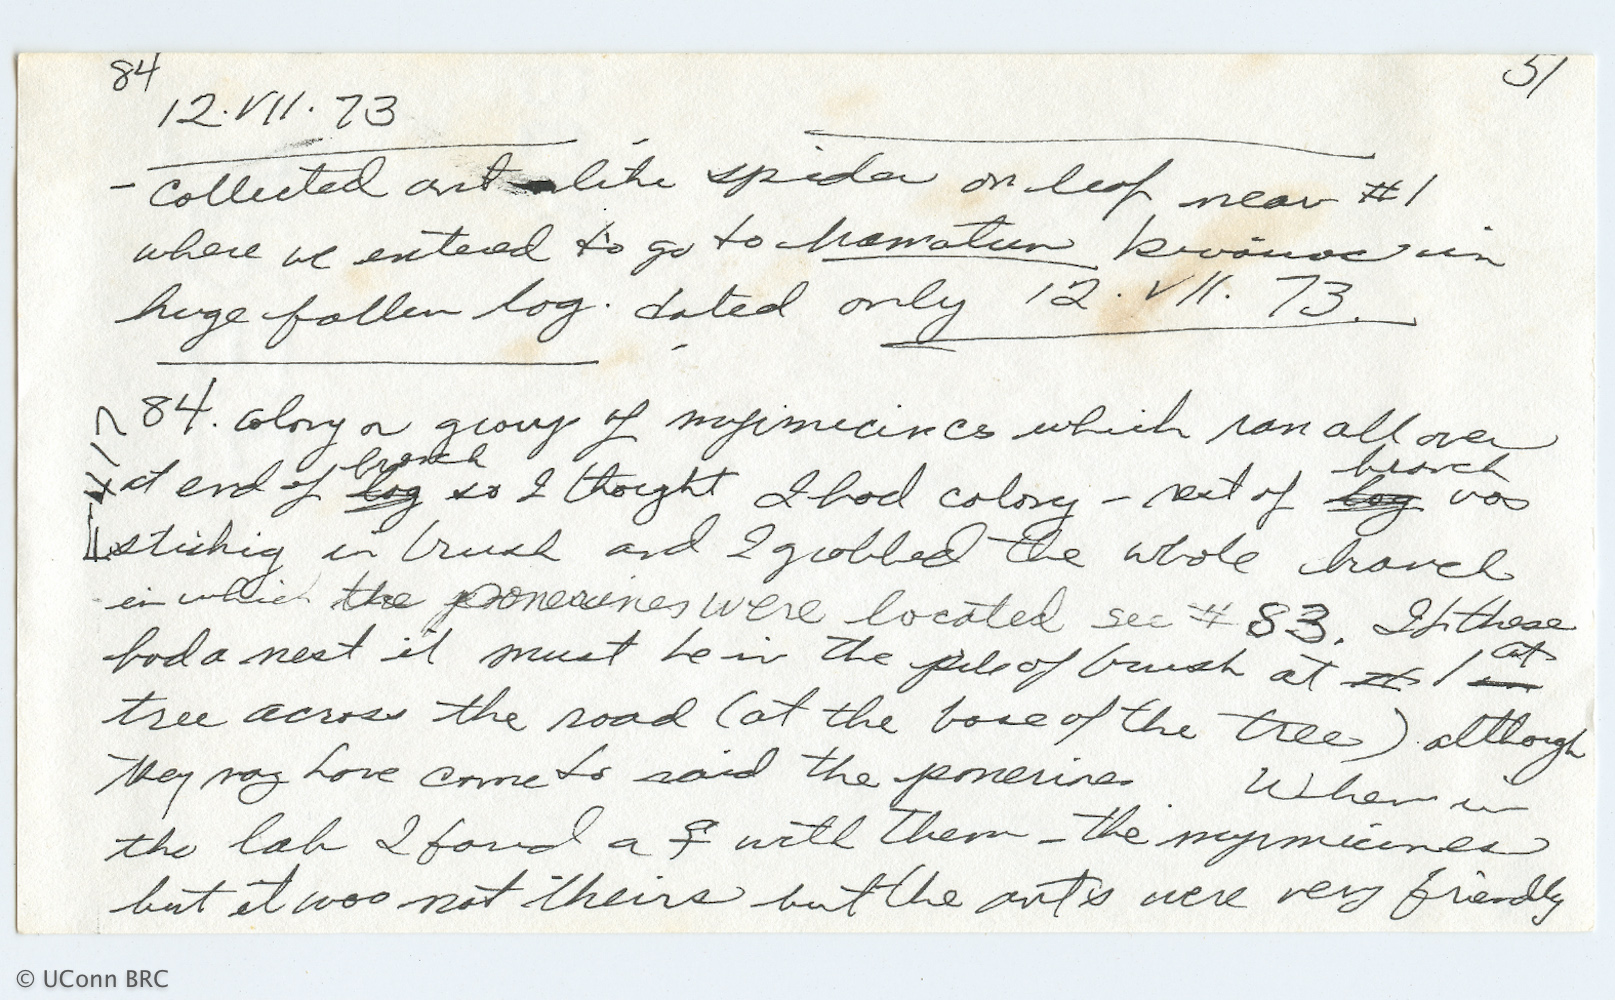 84
51
12.VII.73
- collected ant-like spider on leaf near #1
where we entered to go to hamatum bivouac in
huge fallen log. dated only 12.VII.73.
84. colony or group of myrmicines which ran all over
at end of log branch so I thought I had colony - rest of log branch was
sticking in brush and I grabbed the whole branch
in which the ponerines were located see #83. If these
had a nest it must be in the pile of brush at #1 in at
tree across the road (at the base of the tree) although
they may have come to raid the ponerines When in
the lab I found a ☿ with them - the myrmicines
but it was not theirs but the ants were very friendly
© UConn BRC